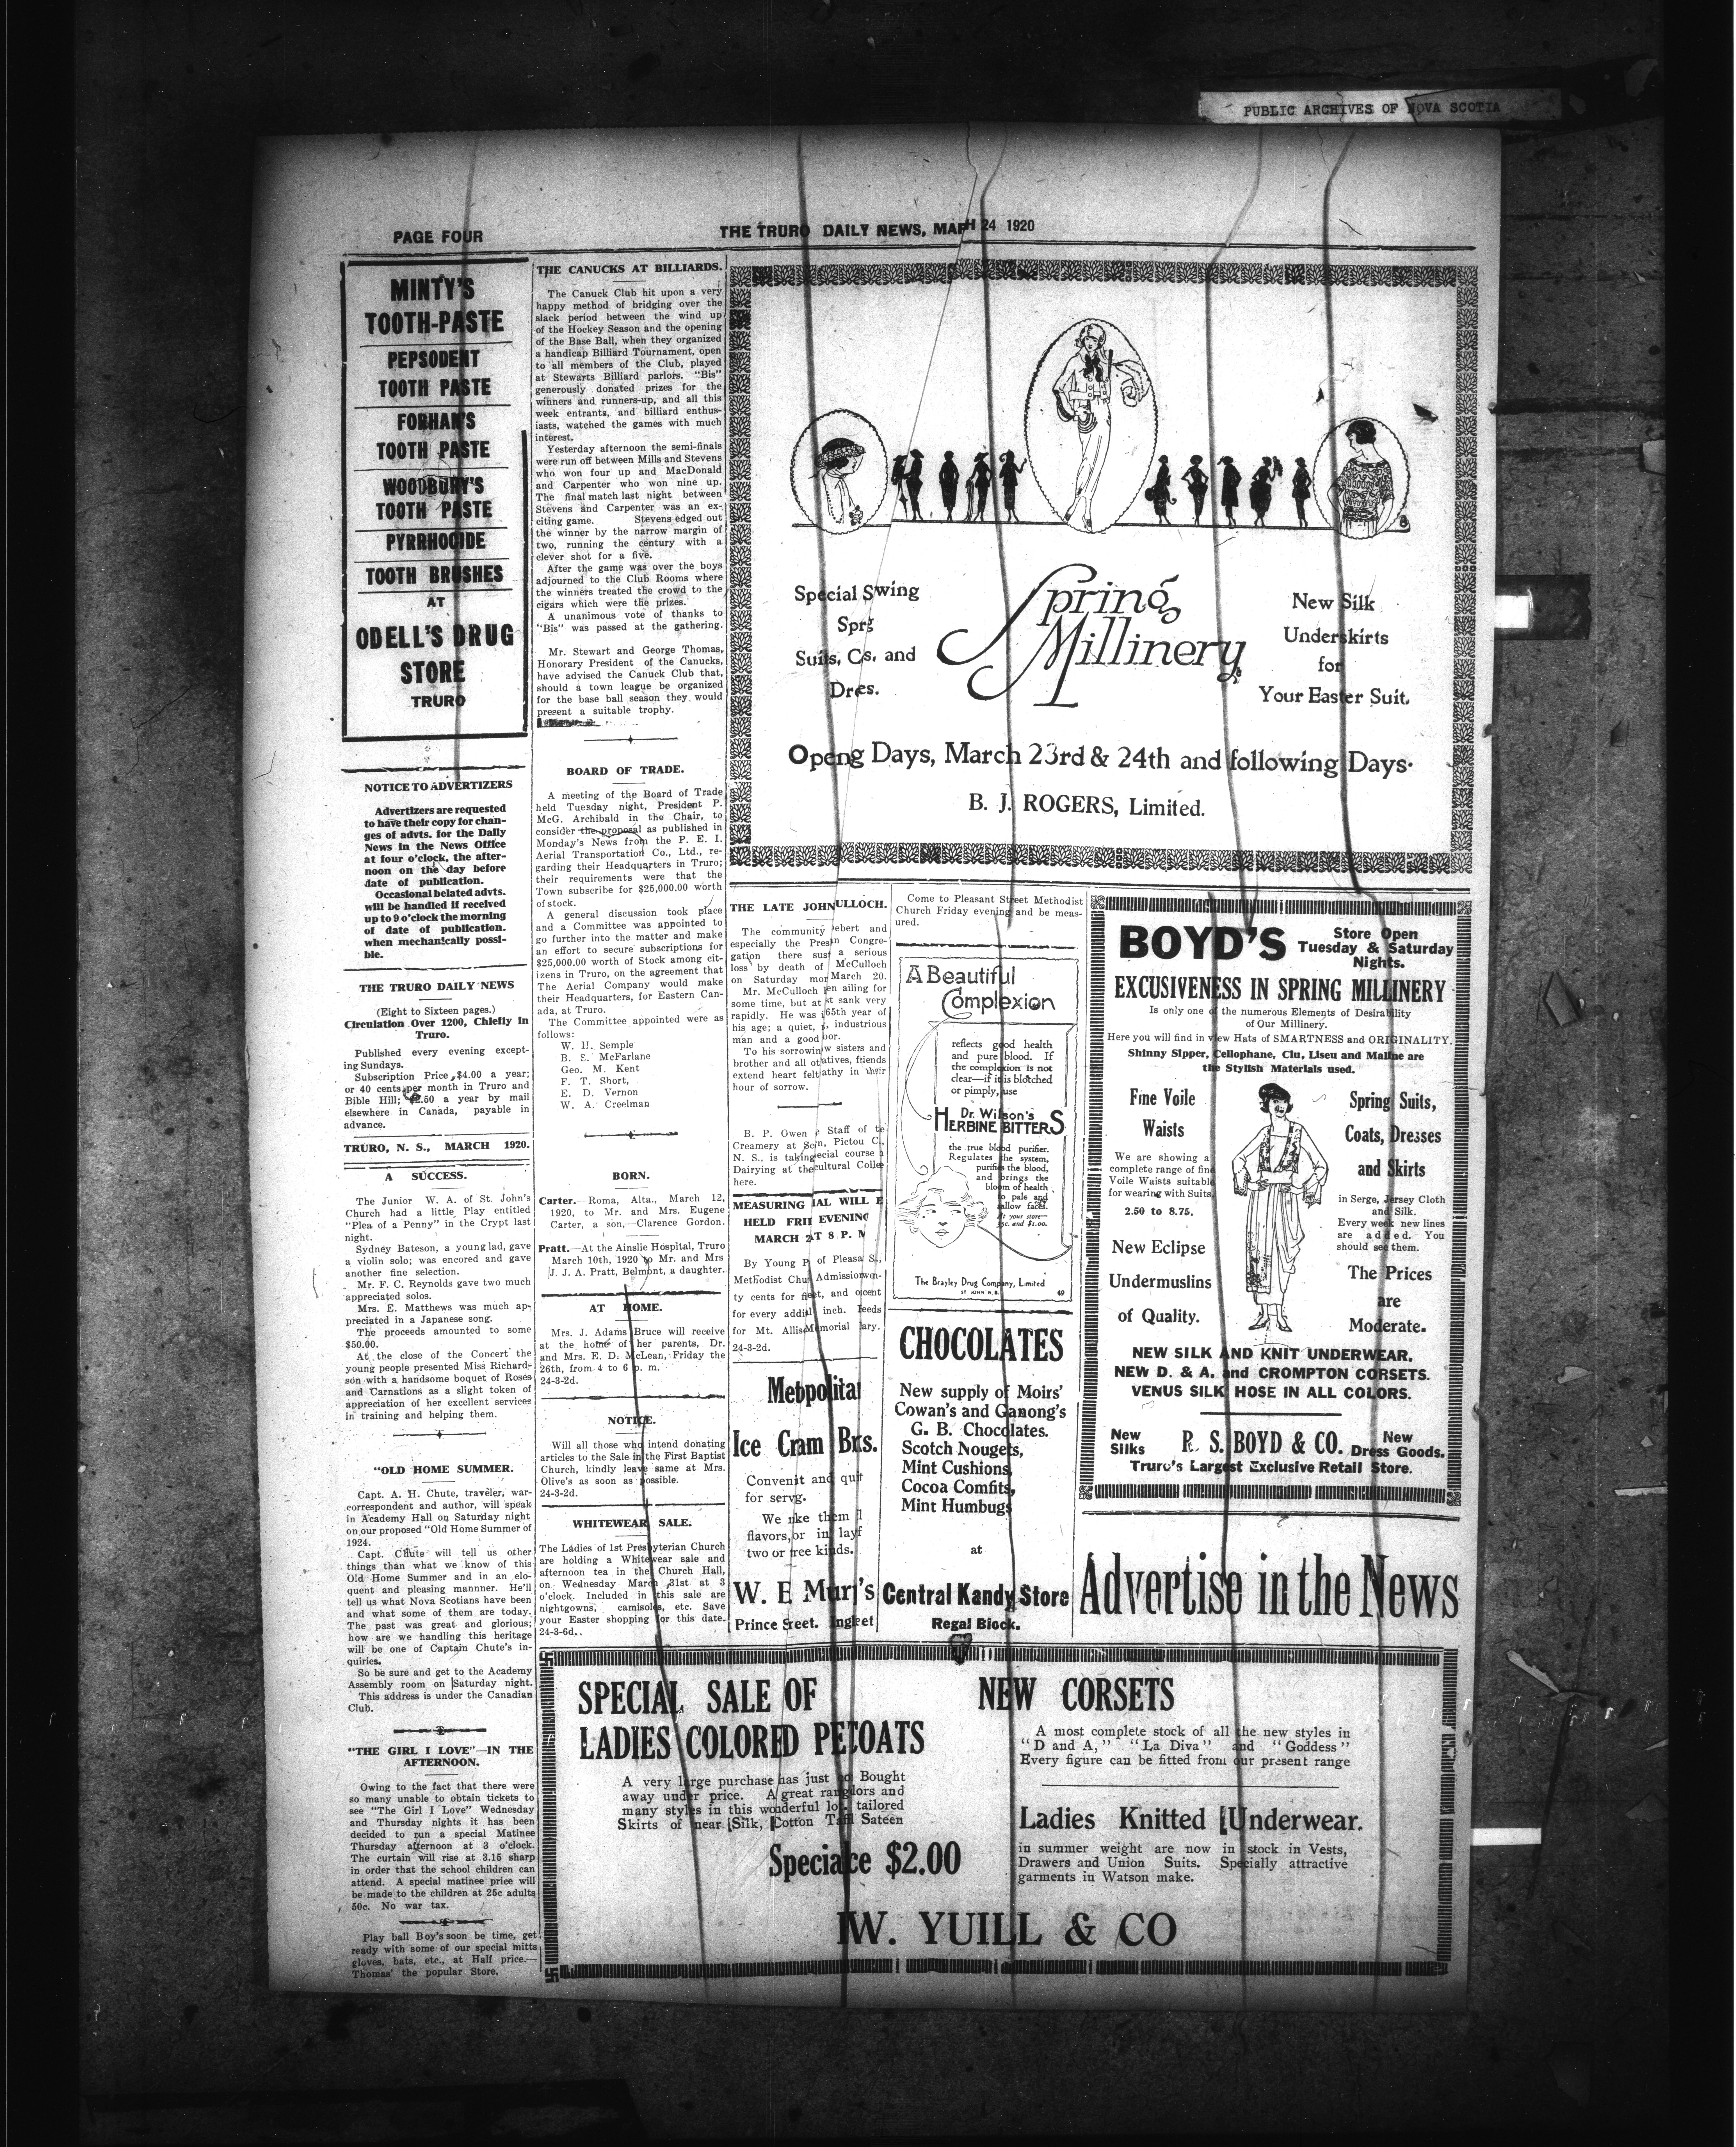 PUBLIC ARCHIVES OF NOVA SCOTIA
PAGE FOUR
THE TRURO DAILY NEWS, MARH 24 1920
MINTY'S
TOOTH-PASTE
PEPSODENT
TOOTH PASTE
FORHAN'S
TOOTH PASTE
WOODBURY'S
TOOTH PASTE
PYRRHOCIDE
TOOTH BRUSHES
AT
ODELL'S DRUG
STORE
TRURO
NOTICE TO ADVERTIZERS
Advertizers are requested
to have their copy for chan-
ges of advts. for the Daily
News in the News Office
at four o'clock, the after-
noon on the day before
date of publication.
Occasional belated advts.
will be handled if received
up to 9 o'clock the morning
of date of publication.
when mechanically possi-
ble.
THE TRURO DAILY NEWS
(Eight to Sixteen pages.)
Circulation Over 1200, Chiefly in
Truro.
Published every evening except-
ing Sundays.
Subscription Price, $4.00 a year;
or 40 cents per month in Truro and
Bible Hill; $2.50 a year by mail
elsewhere in Canada, payable in
advance.
TRURO, N. S., MARCH 1920.
A SUCCESS.
The Junior W. A. of St. John's
Church had a little Play entitled
"Plea of a Penny" in the Crypt last
night.
Sydney Bateson, a young lad, gave
a violin solo; was encored and gave
another fine selection.
Mr. F. C. Reynolds gave two much
appreciated solos.
Mrs. E. Matthews was much ap-
preciated in a Japanese song.
The proceeds amounted to some
$50.00.
At the close of the Concert the
young people presented Miss Richard-
son with a handsome boquet of Roses
and Carnations as a slight token of
appreciation of her excellent services
in training and helping them.
"OLD HOME SUMMER.
Capt. A. H. Chute, traveler, war-
correspondent and author, will speak
in Academy Hall on Saturday night
on our proposed "Old Home Summer of
1924.
Capt. Chute will tell us other
things than what we know of this
Old Home Summer and in an elo-
quent and pleasing mannner. He'll
tell us what Nova Scotians have been
and what some of them are today.
The past was great and glorious;
how are we handling this heritage
will be one of Captain Chute's in-
quiries.
So be sure and get to the Academy
Assembly room on Saturday night.
This address is under the Canadian
Club.
"THE GIRL I LOVE"—IN THE
AFTERNOON.
Owing to the fact that there were
so many unable to obtain tickets to
see "The Girl I Love" Wednesday
and Thursday nights it has been
decided to run a special Matinee
Thursday afternoon at 3 o'clock.
The curtain will rise at 3.15 sharp
in order that the school children can
attend. A special matinee price will
be made to the children at 25c adults
50c. No war tax.
Play ball Boy's soon be time, get
ready with some of our special mitts
gloves, bats, etc., at Half price.—
Thomas' the popular Store.
THE CANUCKS AT BILLIARDS.
The Canuck Club hit upon a very
happy method of bridging over the
slack period between the wind up
of the Hockey Season and the opening
of the Base Ball, when they organized
a handicap Billiard Tournament, open
to all members of the Club, played
at Stewarts Billiard parlors. "Bis"
generously donated prizes for the
winners and runners-up, and all this
week entrants, and billiard enthus-
iasts, watched the games with much
interest.
Yesterday afternoon the semi-finals
were run off between Mills and Stevens
who won four up and MacDonald
and Carpenter who won nine up.
The final match last night between
Stevens and Carpenter was an ex-
citing game. Stevens edged out
the winner by the narrow margin of
two, running the century with a
clever shot for a five.
After the game was over the boys
adjourned to the Club Rooms where
the winners treated the crowd to the
cigars which were the prizes.
A unanimous vote of thanks to
"Bis" was passed at the gathering.
Mr. Stewart and George Thomas,
Honorary President of the Canucks,
have advised the Canuck Club that,
should a town league be organized
for the base ball season they would
present a suitable trophy.
BOARD OF TRADE.
A meeting of the Board of Trade
held Tuesday night, President P.
McG. Archibald in the Chair, to
consider the proposal as published in
Monday's News from the P. E. I.
Aerial Transportation Co., Ltd., re-
garding their Headquarters in Truro;
their requirements were that the
Town subscribe for $25,000.00 worth
of stock.
A general discussion took place
and a Committee was appointed to
go further into the matter and make
an effort to secure subscriptions for
$25,000.00 worth of Stock among cit-
izens in Truro, on the agreement that
The Aerial Company would make
their Headquarters, for Eastern Can-
ada, at Truro.
The Committee appointed were as
follows:
W. H. Semple
B. S. McFarlane
Geo. M. Kent
F. T. Short,
E. D. Vernon
W. A. Creelman
BORN.
Carter.—Roma, Alta., March 12,
1920, to Mr. and Mrs. Eugene
Carter, a son,—Clarence Gordon.
Pratt.—At the Ainslie Hospital, Truro
March 10th, 1920 to Mr. and Mrs
J. J. A. Pratt, Belmont, a daughter.
AT HOME.
Mrs. J. Adams Bruce will receive
at the home of her parents, Dr.
and Mrs. E. D. McLean, Friday the
26th, from 4 to 6 p. m.
24-3-2d.
NOTICE.
Will all those who intend donating
articles to the Sale in the First Baptist
Church, kindly leave same at Mrs.
Olive's as soon as possible.
24-3-2d.
WHITEWEAR SALE.
The Ladies of 1st Presbyterian Church
are holding a Whitewear sale and
afternoon tea in the Church Hall,
on Wednesday March 31st at 3
o'clock. Included in this sale are
nightgowns, camisoles, etc. Save
your Easter shopping for this date.
24-3-6d.
Special Swing
Sprg
Suits, Cs. and
Dres.
Spring
Millinery
New Silk
Underskirts
for
Your Easter Suit.
Openg Days, March 23rd & 24th and following Days.
B. J. ROGERS, Limited.
THE LATE JOHN ULLOCH.
The community ebert and
especially the Pres n Congre-
gation there sus a serious
loss by death of McCulloch
on Saturday mor March 20.
Mr. McCulloch en ailing for
some time, but at st sank very
rapidly. He was 65th year of
his age; a quiet, industrious
man and a good bor.
To his sorrowin w sisters and
brother and all ot atives, friends
extend heart felt athy in their
hour of sorrow.
B. P. Owen Staff of te
Creamery at Sc n, Pictou C.,
N. S., is taking ecial course
Dairying at the cultural Colle
here.
MEASURING IAL WILL E
HELD FRI EVENING
MARCH 2 AT 8 P. M
By Young P of Pleasa S.,
Methodist Chu Admission en-
ty cents for fi et, and o cent
for every addi inch. eeds
for Mt. Allis Memorial ary.
24-3-2d.
Metpolita
Ice Cram Brs.
Convenit and quit
for servg.
We nke them
flavors, or in layf
two or free kinds.
W. E Murj's
Prince Sreet. Ingleet
Come to Pleasant Street Methodist
Church Friday evening and be meas-
ured.
A Beautiful
Complexion
reflects good health
and pure blood. If
the complexion is not
clear—if it is blotched
or pimply, use
Dr. Wilson's
HERBINE BITTERS
the true blood purifier.
Regulates the system,
purifies the blood,
and brings the
bloom of health
to pale and
sallow faces.
At your store—
35c. and $1.00.
The Brayley Drug Company, Limited
ST. JOHN N.B.
49
CHOCOLATES
New supply of Moirs'
Cowan's and Ganong's
G. B. Chocolates.
Scotch Nougets,
Mint Cushions,
Cocoa Comfits,
Mint Humbugs
at
Central Kandy Store
Regal Block.
BOYD'S
Store Open
Tuesday & Saturday
Nights.
EXCUSIVENESS IN SPRING MILLINERY
Is only one of the numerous Elements of Desirability
of Our Millinery.
Here you will find in view Hats of SMARTNESS and ORIGINALITY.
Shinny Sipper, Cellophane, Clu, Liseu and Maline are
the Stylish Materials used.
Fine Voile
Waists
We are showing a
complete range of fine
Voile Waists suitable
for wearing with Suits.
2.50 to 8.75.
New Eclipse
Undermuslins
of Quality.
Spring Suits,
Coats, Dresses
and Skirts
in Serge, Jersey Cloth
and Silk.
Every week new lines
are added. You
should see them.
The Prices
are
Moderate.
NEW SILK AND KNIT UNDERWEAR.
NEW D. & A. and CROMPTON CORSETS.
VENUS SILK HOSE IN ALL COLORS.
New
Silks
R. S. BOYD & CO.
New
Dress Goods.
Truro's Largest Exclusive Retail Store.
Advertise in the News
SPECIAL SALE OF
LADIES COLORED PETCOATS
A very large purchase has just Bought
away under price. A great ran lors and
many styles in this wonderful lo tailored
Skirts of near Silk, Cotton Ta Sateen
Specialce $2.00
NEW CORSETS
A most complete stock of all the new styles in
"D and A," "La Diva" and "Goddess"
Every figure can be fitted from our present range
Ladies Knitted Underwear.
in summer weight are now in stock in Vests,
Drawers and Union Suits. Specially attractive
garments in Watson make.
W. YUILL & CO